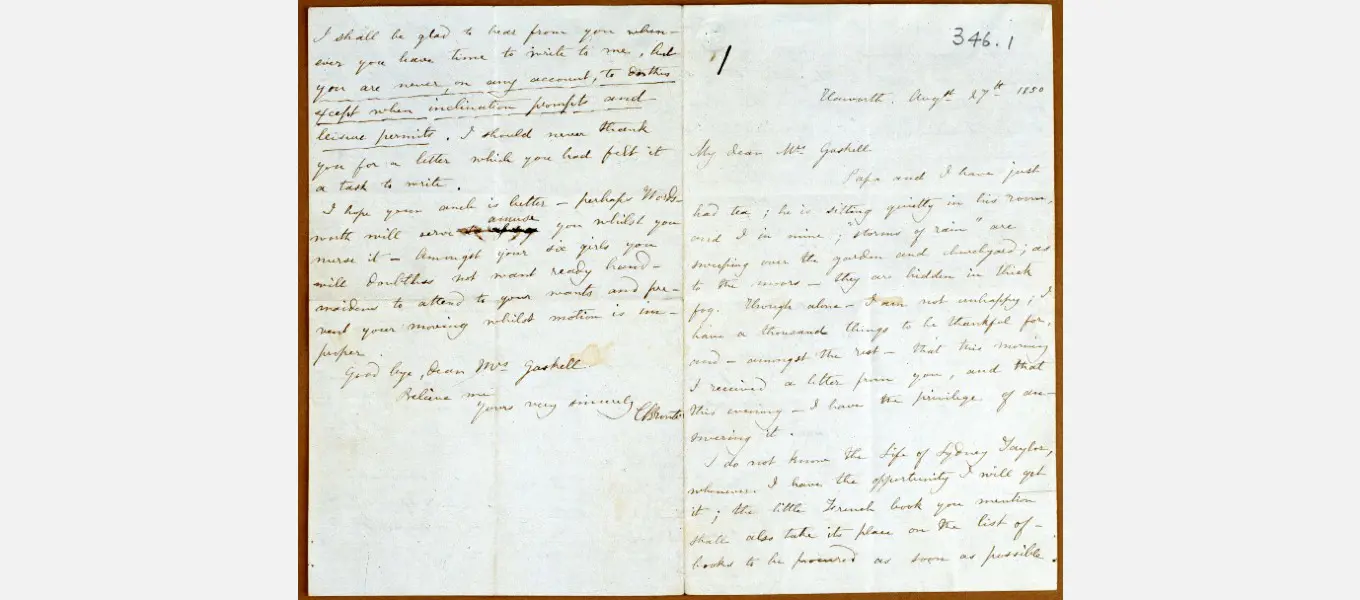 I shall be glad to hear from you when-
ever you have time to write to me, but
you are never, on any account, to do this
except when inclination prompts and
leisure permits. I should never thank
you for a letter which you had felt it
a task to write.
I hope your ancle is better – perhaps Words-
worth will serve to amuse you whilst you
nurse it – Amongst your six girls you
will doubtless not want ready hand-
maidens to attend to your wants and pre-
vent your moving whilst motion is im-
proper
Good bye, dear Mrs Gaskell
Believe me
Yours very sincerely
CBrontë
346.1
1
Haworth. Augst 27th 1850
My dear Mrs Gaskell
Papa and I have just
had tea; he is sitting quietly in his room,
and I in mine; "storms of rain" are
sweeping over the garden and churchyard; as
to the moors – they are hidden in thick
fog. Though alone – I am not unhappy; I
have a thousand things to be thankful for,
and – amongst the rest – that this morning
I received a letter from you, and that
this evening – I have the privilege of an-
swering it.
I do not know the Life of Sydney Taylor,
whenever I have the opportunity I will get
it; the little French book you mention
shall also take its place on the list of –
books to be procured as soon as possible.